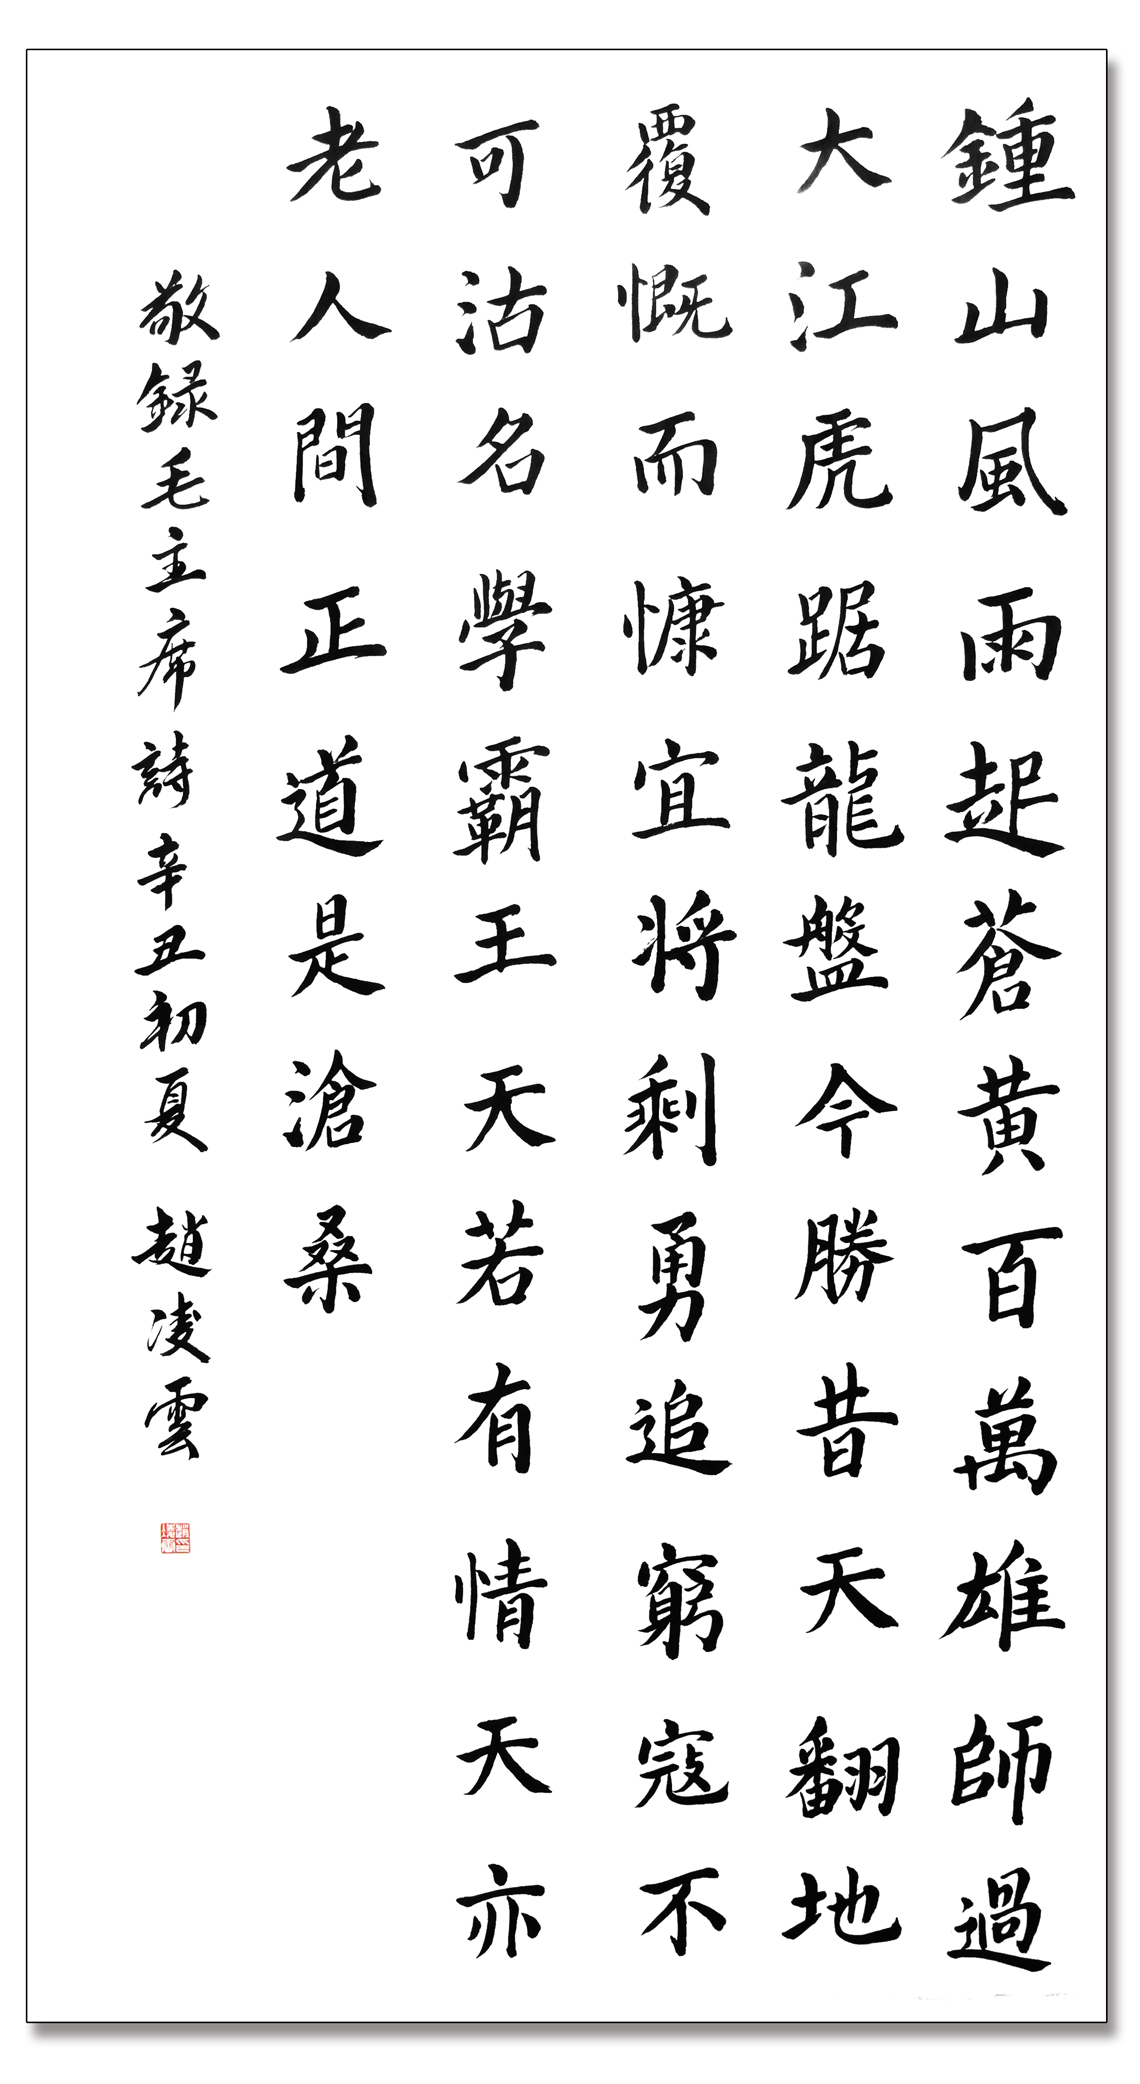 鍾山風雨起蒼黄百萬雄師過
大江虎踞龍盤今勝昔天翻地
覆慨而慷宜将剩勇追窮寇不
可沽名學霸王天若有情天亦
老人間正道是滄桑
敬録毛主席詩辛丑初夏 趙凌雲